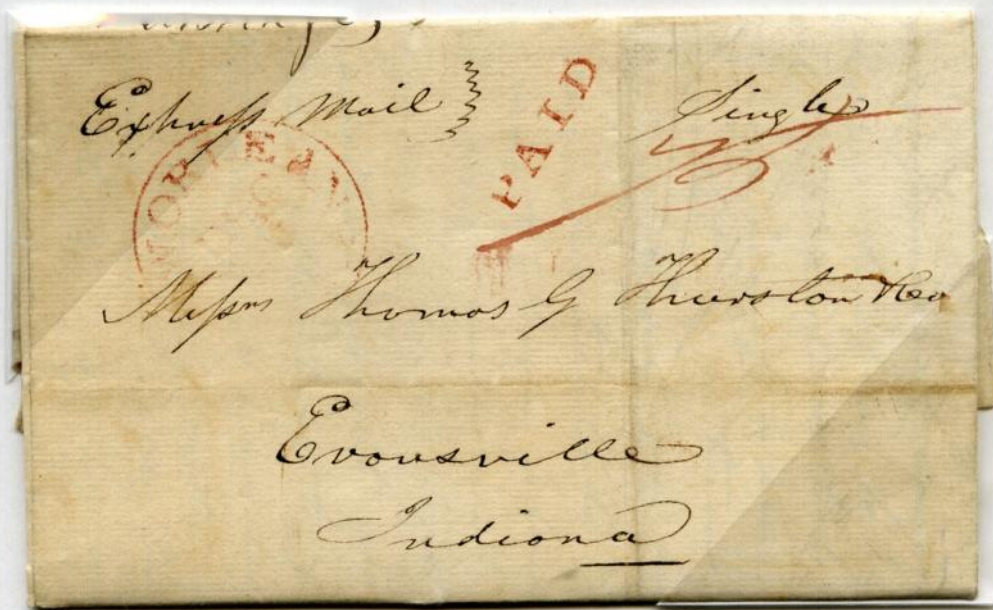 Express Mail
PAID
Single
MOBILE
Messrs Thomas G Thurston & Co
Evansville
Indiana